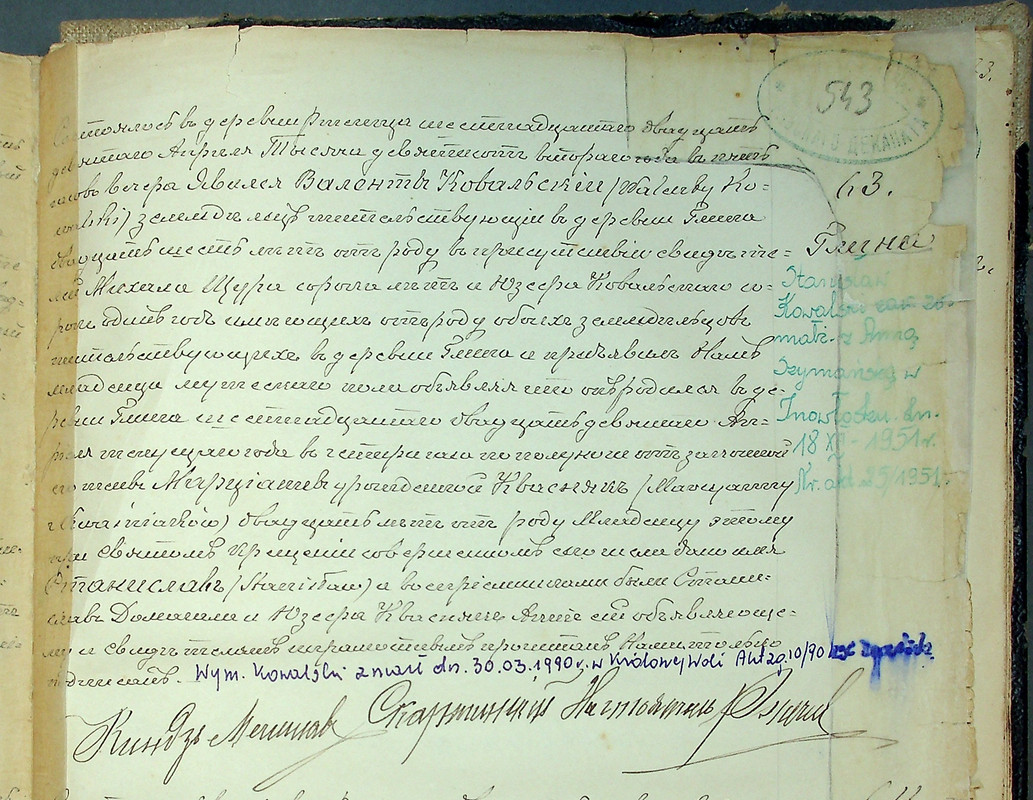 543
ДЕКАНАТА
43.
Глина
Состоялось въ деревни Ржечица шестнадцатаго двадцать
девятаго Апрѣля Тысяча девятисотъ втораго года въ пять
часовъ вечера Явился Валенты Ковальскій (Walenty Ko-
walski) земледѣлецъ жительствующій въ деревни Глина
двадцать шесть лѣтъ отъ роду въ присутствіи свидѣте-
лей Михала Щура сорока лѣтъ и Юзефа Ковальскаго со-
рокъ одинъ годъ имѣющихъ отъ роду обоихъ земледѣльцовъ
жительствующихъ въ деревни Глина и предъявилъ Намъ
младенца мужескаго пола объявляя что онъ родился въ де-
ревни Глина шестнадцатаго двадцать девятаго Ап-
рѣля текущаго года въ четыри часа по полуночи отъ законной
его жены Марціанны урожденной Кваснякъ (Marcyanny
z Kwaśniaków) двадцать лѣтъ отъ роду Младенцу этому
при Святомъ Крещеніи совершенномъ сего числа дано имя
Станиславъ (Stanisław) а воспріемниками были Стани-
славъ Домагала и Юзефа Квасняк Актъ сей объявляюще-
му и свидѣтелямъ неграмотнымъ прочитанъ Нами только
подписанъ. Wym. Kowalski zmarł dn. 30.03.1990 r. w Królowej Woli Akt zg. 10/90
Stanisław
Kowalski zawarł zw.
małż. z Anną
Szymańską w
Inowłodzu dn.
18 XI - 1951 r.
Nr. akt 25/1951
Киндзъ